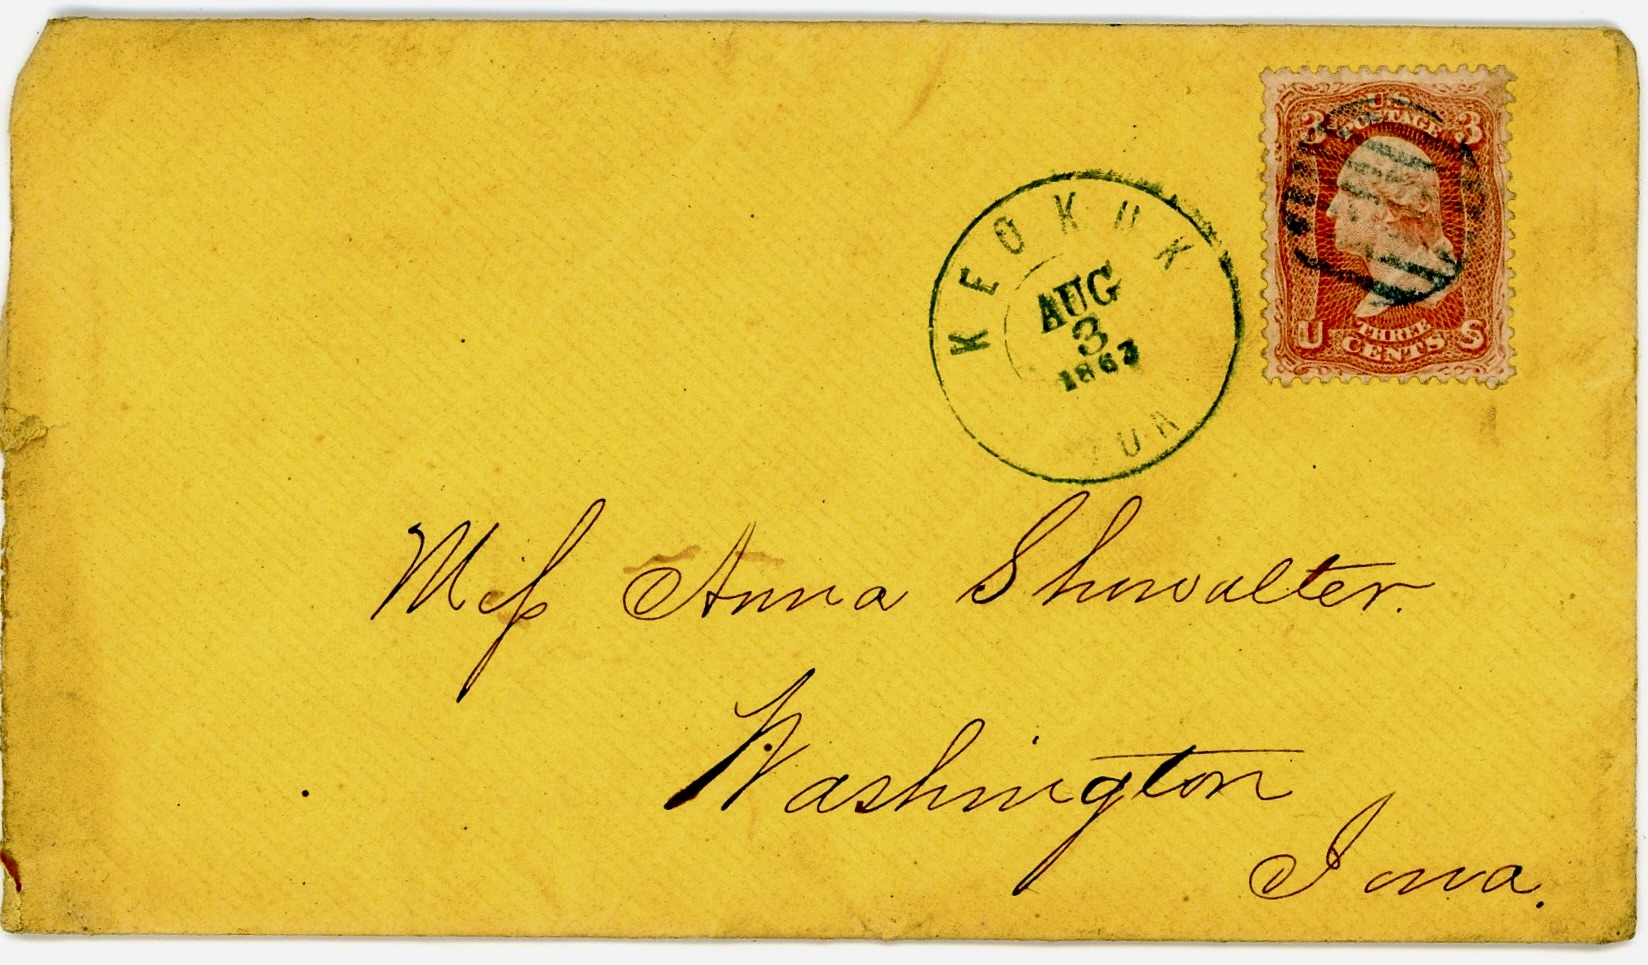 3 POSTAGE 3
U THREE S
CENTS
KEOKUK
AUG
3
1863
Miſs Anna Showalter.
Washington
Iowa.